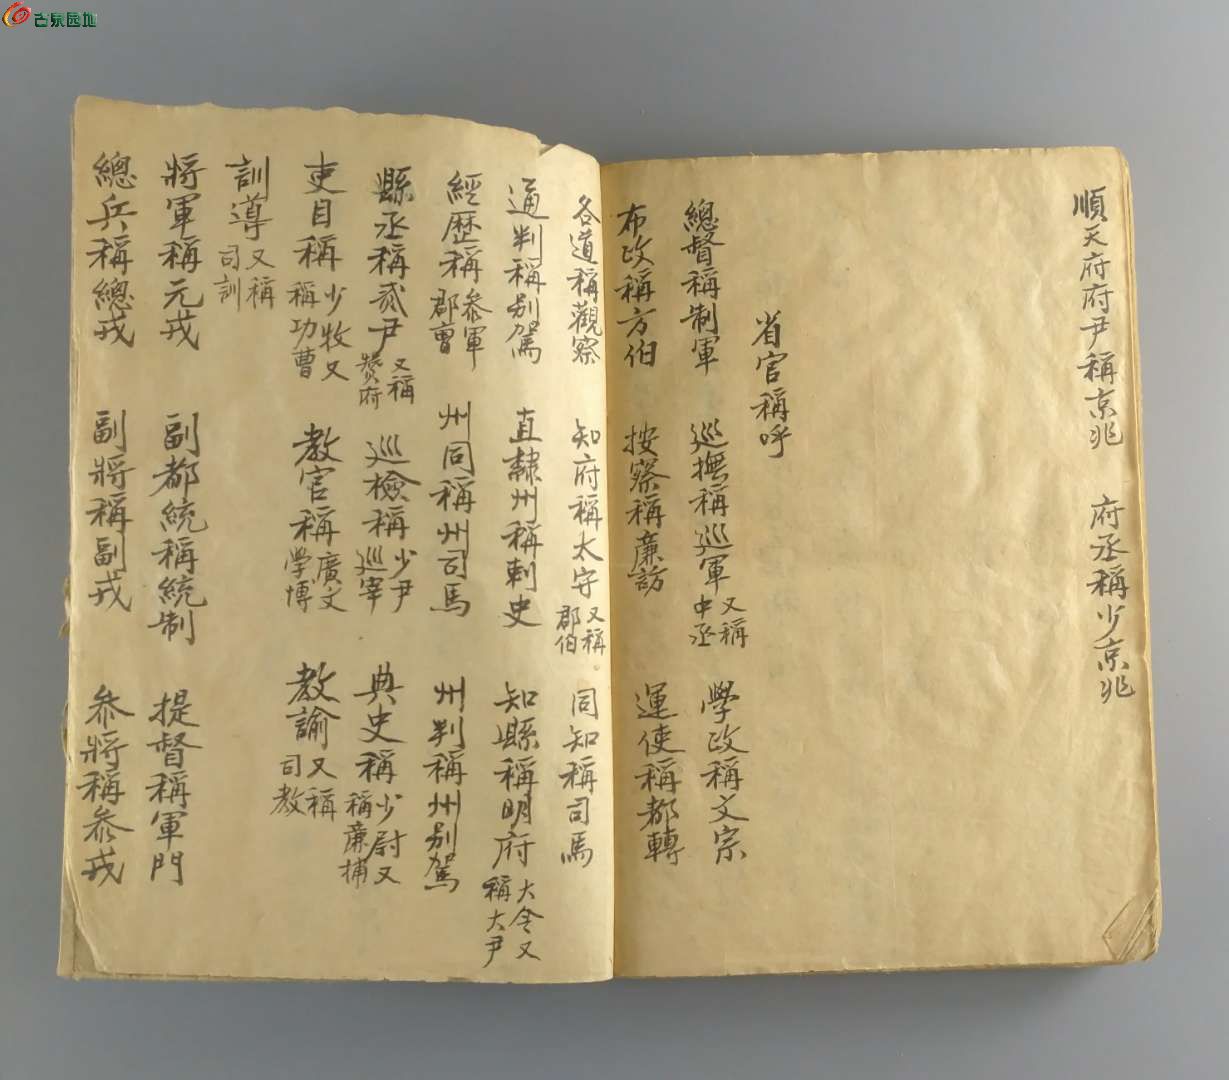 古泉园地
順天府府尹稱京兆 府丞稱少京兆
省官稱呼
總督稱制軍 巡撫稱巡軍又稱中丞 學政稱文宗
布政稱方伯 按察稱廉訪 運使稱都轉
各道稱觀察 知府稱太守又稱郡伯 同知稱司馬
通判稱別駕 直隸州稱刺史 知縣稱明府大令又稱大尹
經歷稱參軍郡曹 州同稱州司馬 州判稱州別駕
縣丞稱貳尹又稱贊府 巡檢稱少尹巡宰 典史稱少尉又稱廉捕
吏目稱少牧又稱功曹 教官稱廣文學博 教諭又稱司教
訓導又稱司訓
將軍稱元戎 副都統稱統制 提督稱軍門
總兵稱總戎 副將稱副戎 參將稱參戎